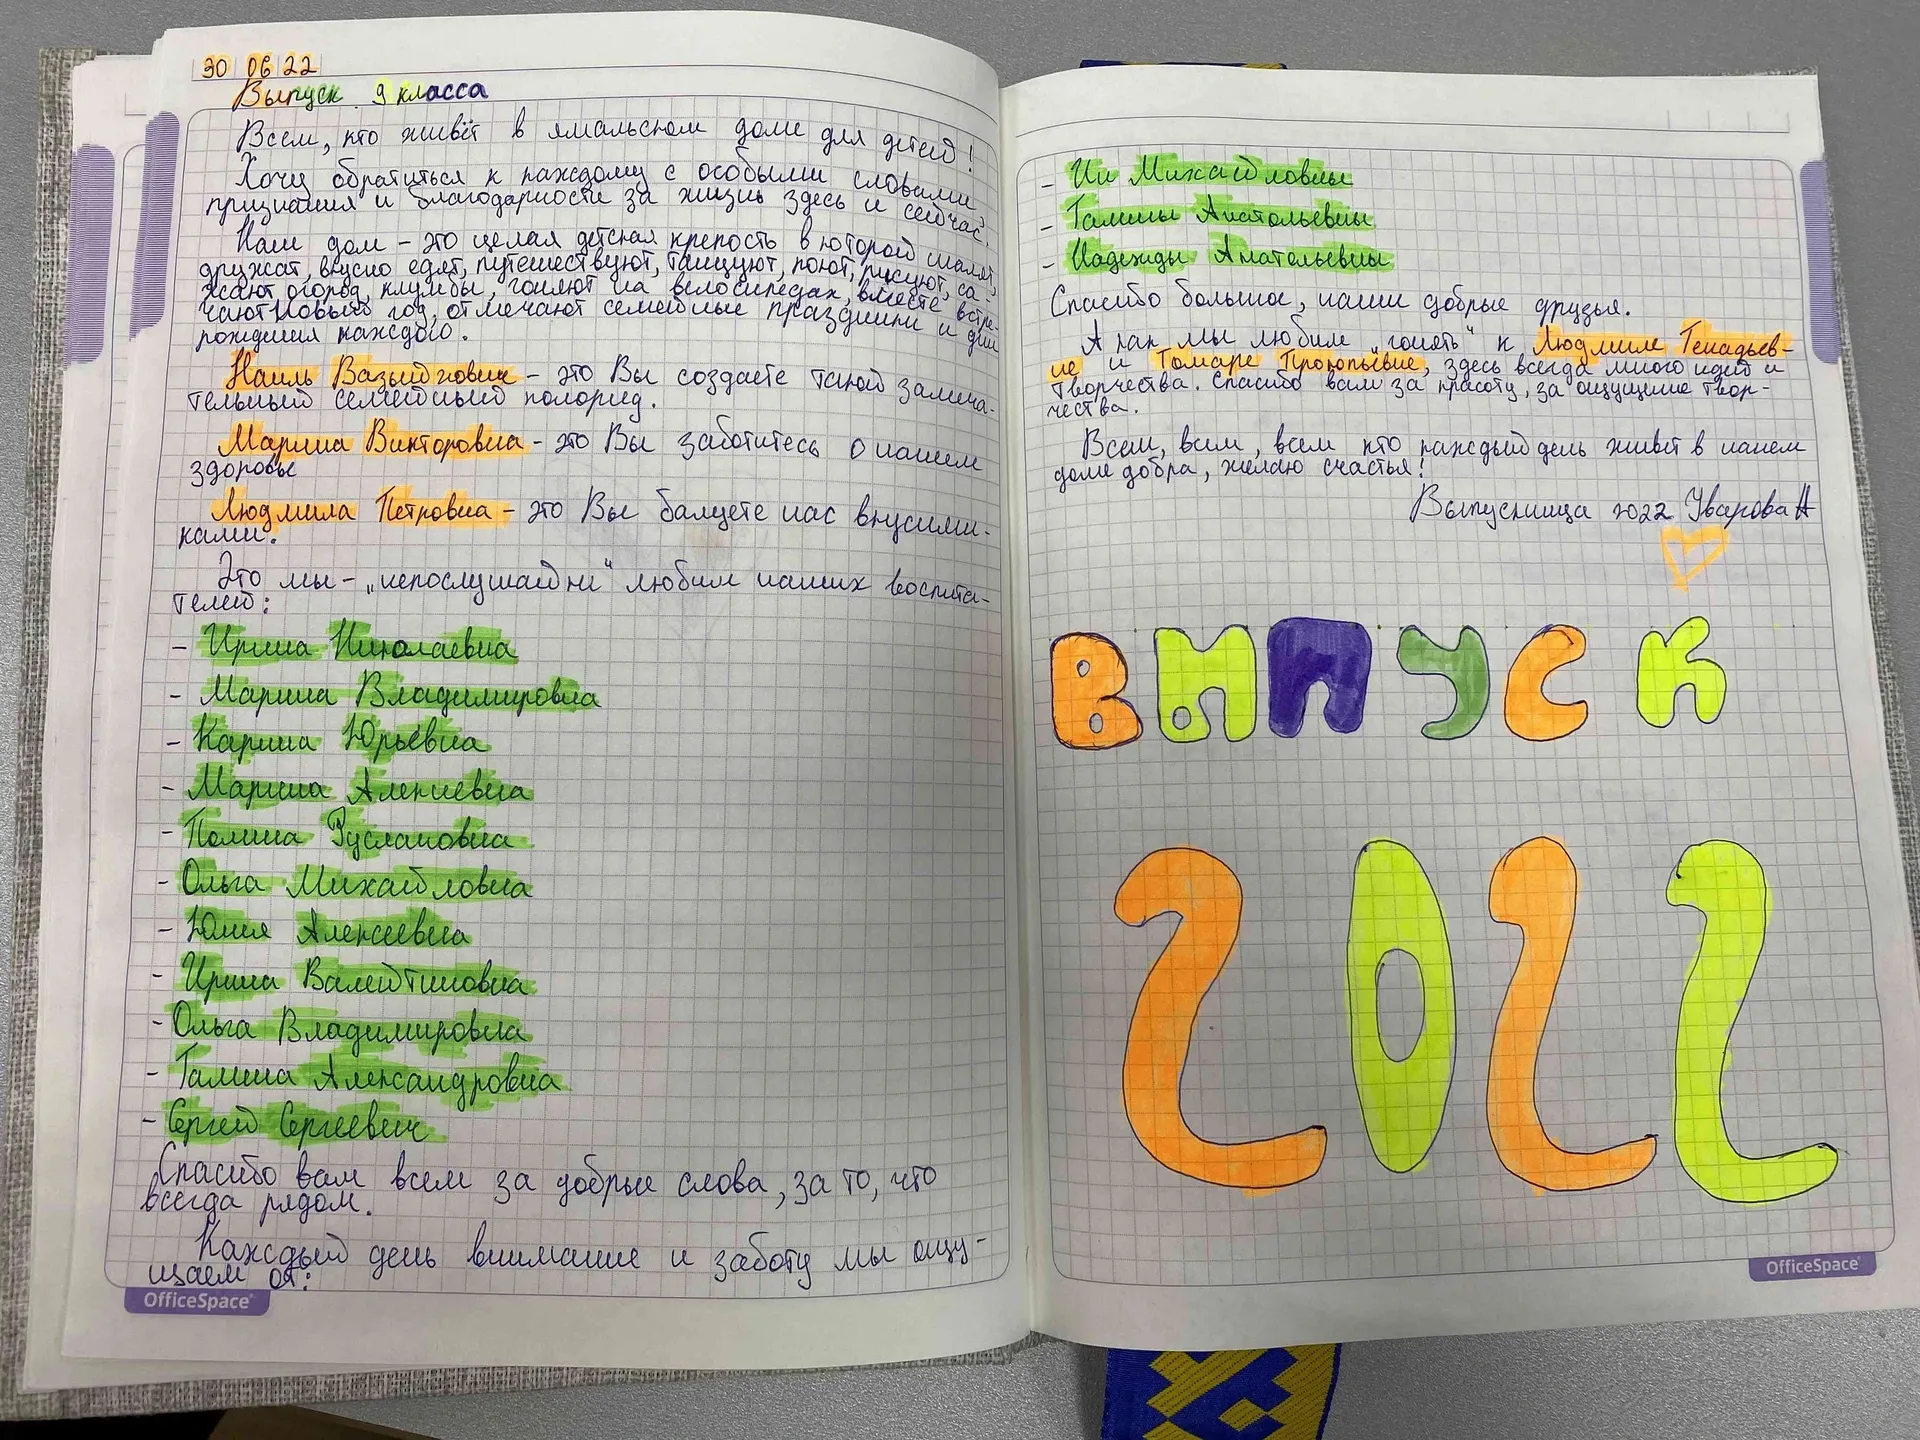 30 06 22
Выпуск 9 класса
Всем, кто живёт в ямальском доме для детей!
Хочу обратиться к каждому с особыми словами
признания и благодарности за жизнь здесь и сейчас.
Наш дом - это целая детская крепость в которой шалят,
дружат, вкусно едят, путешествуют, танцуют, поют, рисуют, са-
жают огород, клумбы, гоняют на велосипедах, вместе встре-
чают Новый год, отмечают семейные праздники и дни
рождения каждого.
Наиль Вазыйговна - это Вы создаете такой замеча-
тельный семейный колорид.
Марина Викторовна - это Вы заботитесь о нашем
здоровье
Людмила Петровна - это Вы балуете нас вкусными-
ками.
Это мы - „непослушайки“ любим наших воспита-
телей:
- Ирина Николаевна
- Марина Владимировна
- Карина Юрьевна
- Марина Алексевна
- Полина Руслановна
- Ольга Михайловна
- Юлия Алексеевна
- Ирина Валейтиновна
- Ольга Владимировна
- Галина Александровна
- Сергей Сергеевич
Спасибо вам всем за добрые слова, за то, что
всегда рядом.
Каждый день внимание и заботу мы ощу-
щаем от:
OfficeSpace
- Ии Михайловны
- Галины Анатольевны
- Надежды Анатольевны
Спасибо большое, наши добрые друзья.
А как мы любим „гонять“ к Людмиле Генадьев-
не и Томаре Прокопьевне, здесь всегда много идей и
творчества. Спасибо вам за красоту, за ощущение твор-
чества.
Всем, всем, всем кто каждый день живет в нашем
доме добра, желаю счастья!
Выпускница 2022 Уварова А
ВЫПУСК
2022
OfficeSpace